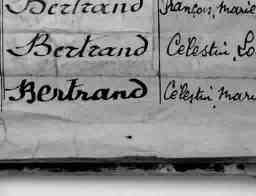 Bertrand François, Marie
Bertrand Célestin, Lo
Bertrand Célestin, Mari